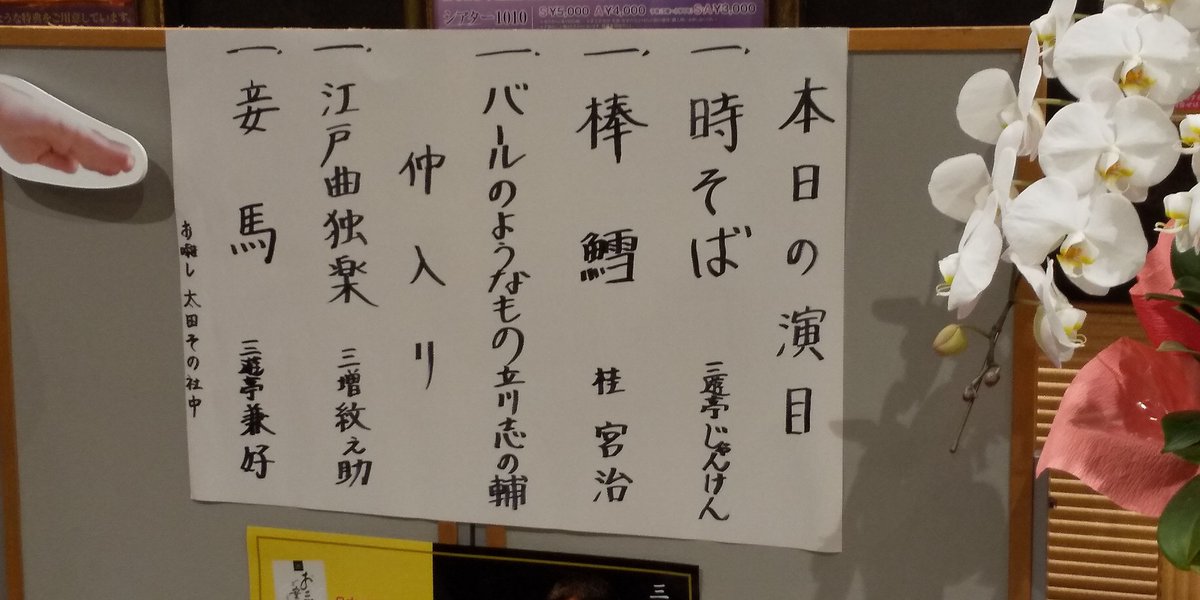 本日の演目
一、時そば 三遊亭じゃんけん
一、棒鱈 桂宮治
一、バールのようなもの 立川志の輔
仲入り
一、江戸曲独楽 三増紋之助
一、妾馬 三遊亭兼好
お囃し 太田その社中
シアター1010
S¥5,000 A¥4,000
SA¥3,000
ような特典をご用意しています。
三